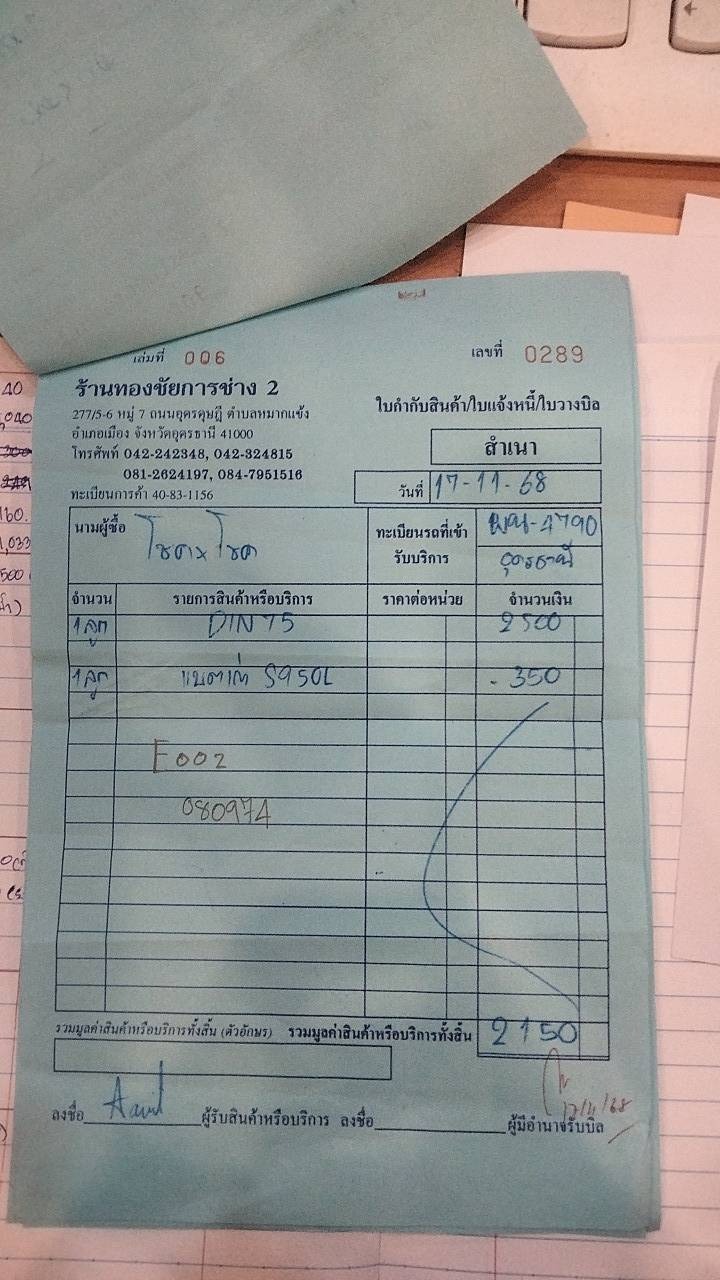 เล่มที่ 006 เลขที่ 0289
ร้านทองชัยการช่าง 2
277/5-6 หมู่ 7 ถนนอุดรดุษฎี ตำบลหมากแข้ง
อำเภอเมือง จังหวัดอุดรธานี 41000
โทรศัพท์ 042-242348, 042-324815
081-2624197, 084-7951516
ทะเบียนการค้า 40-83-1156
ใบกำกับสินค้า/ใบแจ้งหนี้/ใบวางบิล
สำเนา
วันที่ 17-11-68
นามผู้ซื้อ โชคxโชค
ทะเบียนรถที่เข้ารับบริการ
-4790
อุดรธานี
จำนวน รายการสินค้าหรือบริการ ราคาต่อหน่วย จำนวนเงิน
1 ลูก DIN 75 2500
1 ลูก แบตเก่า S95DL - 350
E002
080974
รวมมูลค่าสินค้าหรือบริการทั้งสิ้น (ตัวอักษร) รวมมูลค่าสินค้าหรือบริการทั้งสิ้น 2150
17/11/68
ลงชื่อ ผู้รับสินค้าหรือบริการ ลงชื่อ ผู้มีอำนาจรับบิล